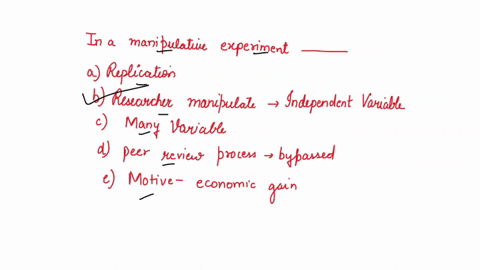 In a manipulative experiment ______
a) Replication
b) Researcher manipulate → Independent Variable
c) Many Variable
d) peer review process → bypassed
e) Motive - economic gain